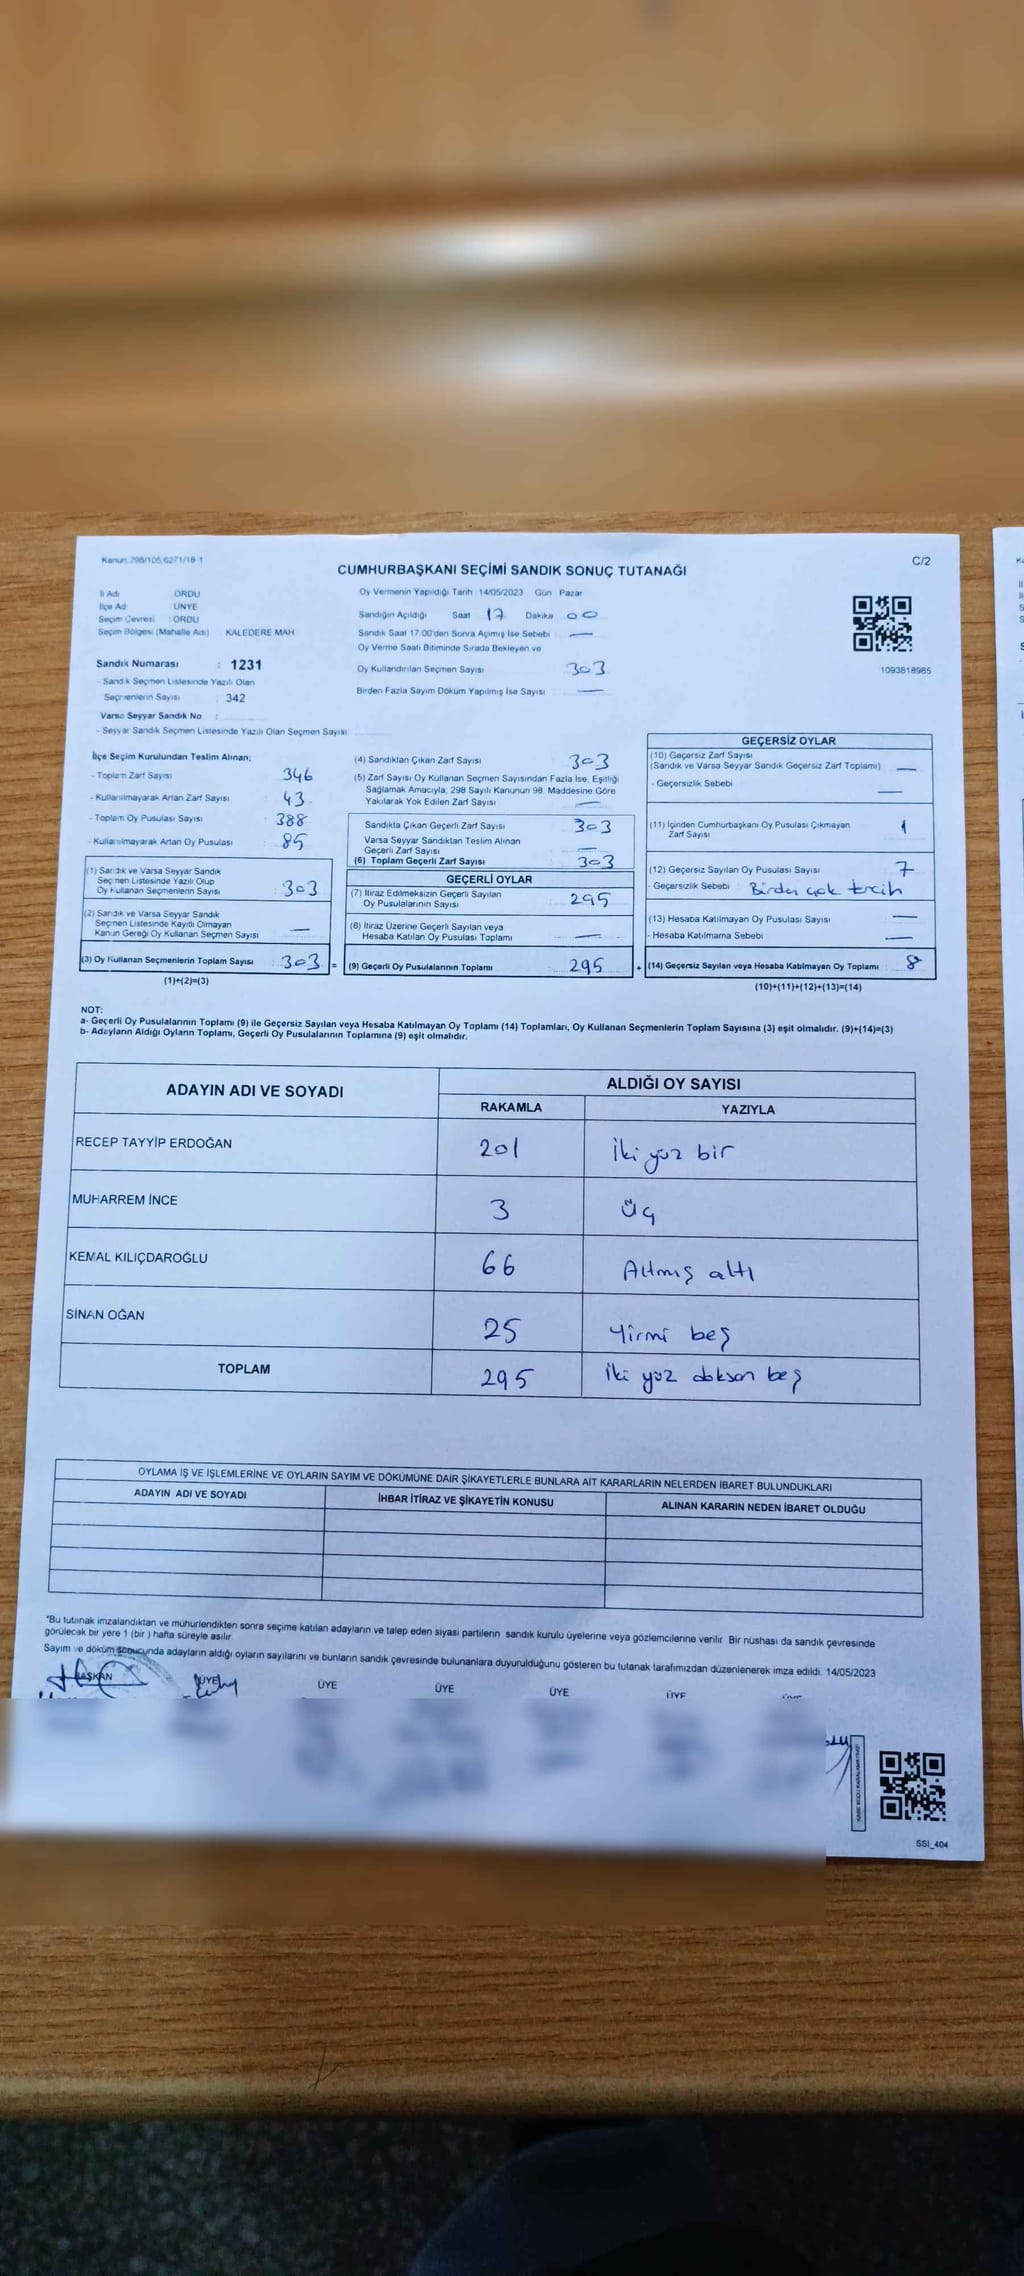 Kanun 298/105,6271/18-1
C/2
CUMHURBAŞKANI SEÇİMİ SANDIK SONUÇ TUTANAĞI
İl Adı ORDU
İlçe Adı ÜNYE
Seçim Çevresi : ORDU
Seçim Bölgesi (Mahalle Adı) KALEDERE MAH
Sandık Numarası : 1231
- Sandık Seçmen Listesinde Yazılı Olan
Seçmenlerin Sayısı : 342
Varsa Seyyar Sandık No :
- Seyyar Sandık Seçmen Listesinde Yazılı Olan Seçmen Sayısı
Oy Vermenin Yapıldığı Tarih 14/05/2023 Gün Pazar
Sandığın Açıldığı Saat 17 Dakika 00
Sandık Saat 17.00'den Sonra Açılmış İse Sebebi —
Oy Verme Saati Bitiminde Sırada Bekleyen ve
Oy Kullandırılan Seçmen Sayısı 303
Birden Fazla Sayım Döküm Yapılmış İse Sayısı —
1093818985
İlçe Seçim Kurulundan Teslim Alınan;
- Toplam Zarf Sayısı 346
- Kullanılmayarak Artan Zarf Sayısı 43
- Toplam Oy Pusulası Sayısı 388
- Kullanılmayarak Artan Oy Pusulası 85
(1) Sandık ve Varsa Seyyar Sandık
Seçmen Listesinde Yazılı Olup
Oy Kullanan Seçmenlerin Sayısı 303
(2) Sandık ve Varsa Seyyar Sandık
Seçmen Listesinde Kayıtlı Olmayan
Kanun Gereği Oy Kullanan Seçmen Sayısı —
(3) Oy Kullanan Seçmenlerin Toplam Sayısı : 303 =
(1)+(2)=(3)
(4) Sandıktan Çıkan Zarf Sayısı 303
(5) Zarf Sayısı Oy Kullanan Seçmen Sayısından Fazla İse, Eşitliği
Sağlamak Amacıyla, 298 Sayılı Kanunun 98. Maddesine Göre
Yakılarak Yok Edilen Zarf Sayısı —
Sandıkta Çıkan Geçerli Zarf Sayısı 303
Varsa Seyyar Sandıktan Teslim Alınan
Geçerli Zarf Sayısı —
(6) Toplam Geçerli Zarf Sayısı 303
GEÇERLİ OYLAR
(7) İtiraz Edilmeksizin Geçerli Sayılan
Oy Pusulalarının Sayısı 295
(8) İtiraz Üzerine Geçerli Sayılan veya
Hesaba Katılan Oy Pusulası Toplamı —
(9) Geçerli Oy Pusulalarının Toplamı 295 +
GEÇERSİZ OYLAR
(10) Geçersiz Zarf Sayısı
(Sandık ve Varsa Seyyar Sandık Geçersiz Zarf Toplamı) —
- Geçersizlik Sebebi —
(11) İçinden Cumhurbaşkanı Oy Pusulası Çıkmayan
Zarf Sayısı 1
(12) Geçersiz Sayılan Oy Pusulası Sayısı 7
- Geçersizlik Sebebi Birden çok tercih
(13) Hesaba Katılmayan Oy Pusulası Sayısı —
- Hesaba Katılmama Sebebi —
(14) Geçersiz Sayılan veya Hesaba Katılmayan Oy Toplamı 8
(10)+(11)+(12)+(13)=(14)
NOT:
a- Geçerli Oy Pusulalarının Toplamı (9) ile Geçersiz Sayılan veya Hesaba Katılmayan Oy Toplamı (14) Toplamları, Oy Kullanan Seçmenlerin Toplam Sayısına (3) eşit olmalıdır. (9)+(14)=(3)
b- Adayların Aldığı Oyların Toplamı, Geçerli Oy Pusulalarının Toplamına (9) eşit olmalıdır.
ADAYIN ADI VE SOYADI ALDIĞI OY SAYISI
RAKAMLA YAZIYLA
RECEP TAYYİP ERDOĞAN 201 İki yüz bir
MUHARREM İNCE 3 Üç
KEMAL KILIÇDAROĞLU 66 Altmış altı
SİNAN OĞAN 25 Yirmi beş
TOPLAM 295 İki yüz doksan beş
OYLAMA İŞ VE İŞLEMLERİNE VE OYLARIN SAYIM VE DÖKÜMÜNE DAİR ŞİKAYETLERLE BUNLARA AİT KARARLARIN NELERDEN İBARET BULUNDUKLARI
ADAYIN ADI VE SOYADI İHBAR İTİRAZ VE ŞİKAYETİN KONUSU ALINAN KARARIN NEDEN İBARET OLDUĞU
"Bu tutanak imzalandıktan ve mühürlendikten sonra seçime katılan adayların ve talep eden siyasi partilerin sandık kurulu üyelerine veya gözlemcilerine verilir. Bir nüshası da sandık çevresinde
görülecek bir yere 1 (bir) hafta süreyle asılır
Sayım ve döküm sonucunda adayların aldığı oyların sayılarını ve bunların sandık çevresinde bulunanlara duyurulduğunu gösteren bu tutanak tarafımızdan düzenlenerek imza edildi. 14/05/2023
BAŞKAN ÜYE ÜYE ÜYE ÜYE ÜYE
SSI_404